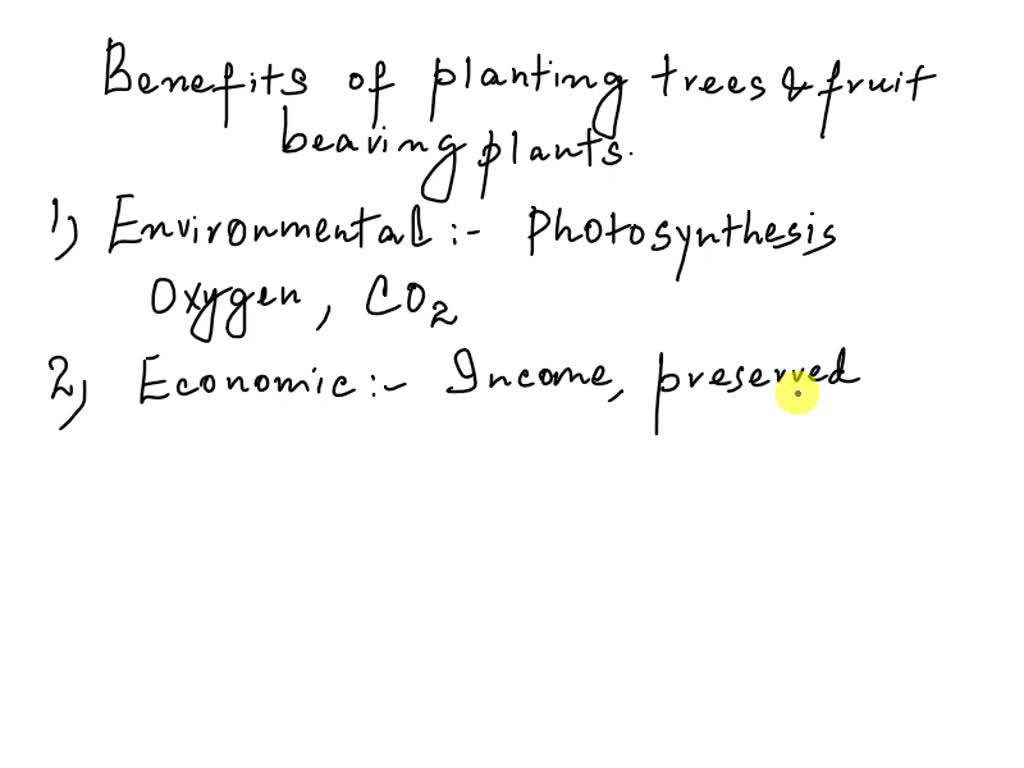 Benefits of planting trees & fruit
bearing plants.
1) Environmental :- Photosynthesis
Oxygen, CO2
2) Economic :- Income, preserved